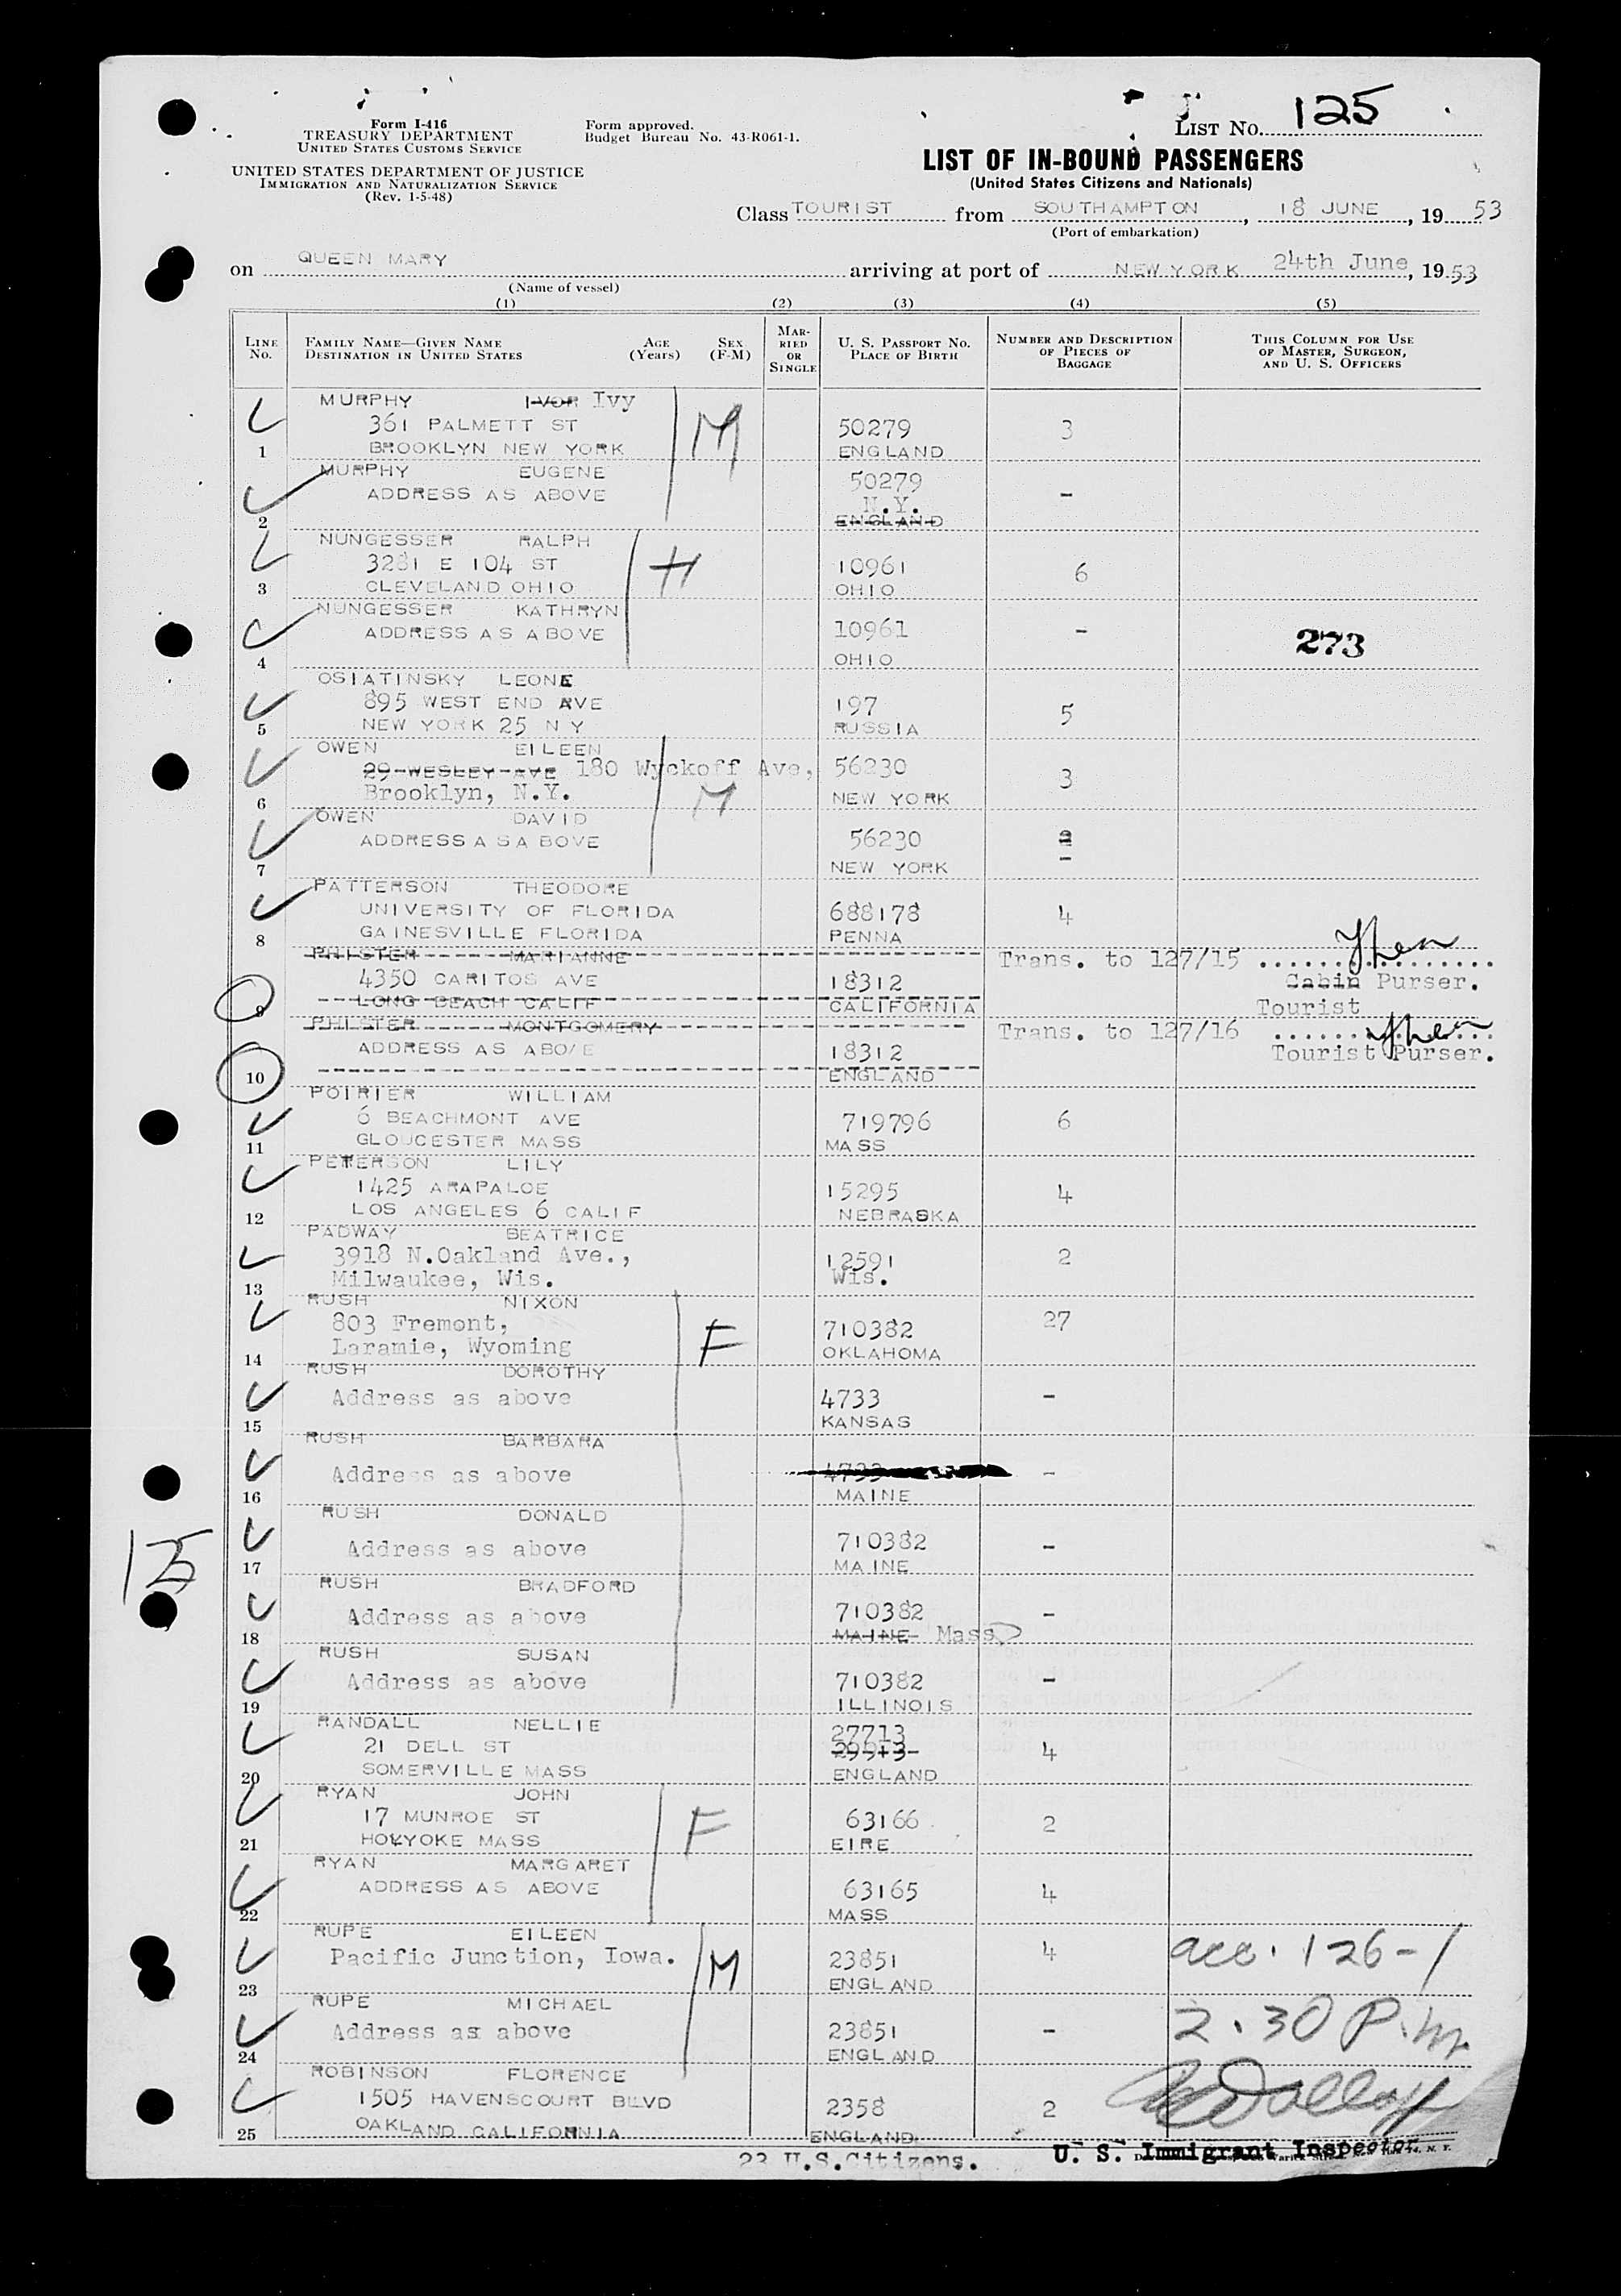 Form I-416
TREASURY DEPARTMENT
UNITED STATES CUSTOMS SERVICE
UNITED STATES DEPARTMENT OF JUSTICE
IMMIGRATION AND NATURALIZATION SERVICE
(Rev. 1-5-48)
Form approved.
Budget Bureau No. 43-R061-1.
LIST NO. 125
LIST OF IN-BOUND PASSENGERS
(United States Citizens and Nationals)
Class TOURIST from SOUTHAMPTON, 18 JUNE, 1953
(Port of embarkation)
on QUEEN MARY arriving at port of NEW YORK 24th June, 1953
(Name of vessel)
(1) (2) (3) (4) (5)
LINE NO.
FAMILY NAME—GIVEN NAME
DESTINATION IN UNITED STATES
AGE (Years)
SEX (F-M)
MARRIED OR SINGLE
U. S. PASSPORT NO.
PLACE OF BIRTH
NUMBER AND DESCRIPTION OF PIECES OF BAGGAGE
THIS COLUMN FOR USE OF MASTER, SURGEON, AND U. S. OFFICERS
MURPHY IVOR Ivy M
361 PALMETT ST 50279 3
1 BROOKLYN NEW YORK ENGLAND
MURPHY EUGENE 50279
ADDRESS AS ABOVE N.Y. -
2 ENGLAND
NUNGESSER RALPH H
3281 E 104 ST 10961 6
3 CLEVELAND OHIO OHIO
NUNGESSER KATHRYN
ADDRESS AS ABOVE 10961 - 273
4 OHIO
OSIATINSKY LEONE
895 WEST END AVE 197 5
5 NEW YORK 25 N Y RUSSIA
OWEN EILEEN
29 WESLEY AVE 180 Wyckoff Ave, 56230 3
6 Brooklyn, N.Y. M NEW YORK
OWEN DAVID
ADDRESS A SA BOVE 56230 -
7 NEW YORK
PATTERSON THEODORE
UNIVERSITY OF FLORIDA 688178 4
8 GAINESVILLE FLORIDA PENNA
PHISTER MARIANNE Trans. to 127/15
4350 CARITOS AVE 18312 Cabin Purser.
9 LONG BEACH CALIF CALIFORNIA Tourist
PHISTER MONTGOMERY Trans. to 127/16
ADDRESS AS ABOVE 18312 Tourist Purser.
10 ENGLAND
POIRIER WILLIAM
6 BEACHMONT AVE 719796 6
11 GLOUCESTER MASS MASS
PETERSON LILY
1425 ARAPALOE 15295 4
12 LOS ANGELES 6 CALIF NEBRASKA
PADWAY BEATRICE
3918 N.Oakland Ave., 12591 2
13 Milwaukee, Wis. Wis.
RUSH NIXON
803 Fremont, F 710382 27
14 Laramie, Wyoming OKLAHOMA
RUSH DOROTHY
Address as above 4733 -
15 KANSAS
RUSH BARBARA
Address as above 4733 -
16 MAINE
RUSH DONALD
Address as above 710382 -
17 MAINE
RUSH BRADFORD
Address as above 710382 -
18 MAINE Mass
RUSH SUSAN
Address as above 710382 -
19 ILLINOIS
RANDALL NELLIE 27713
21 DELL ST 29913 4
20 SOMERVILLE MASS ENGLAND
RYAN JOHN
17 MUNROE ST F 63166 2
21 HOLYOKE MASS EIRE
RYAN MARGARET
ADDRESS AS ABOVE 63165 4
22 MASS
RUPE EILEEN
Pacific Junction, Iowa. M 23851 4 acc. 126-1
23 ENGLAND
RUPE MICHAEL 2.30 P.m.
Address as above 23851 -
24 ENGLAND
ROBINSON FLORENCE
1505 HAVENSCOURT BLVD 2358 2
25 OAKLAND CALIFORNIA ENGLAND
23 U.S.Citizens.
U. S. Immigrant Inspector
125